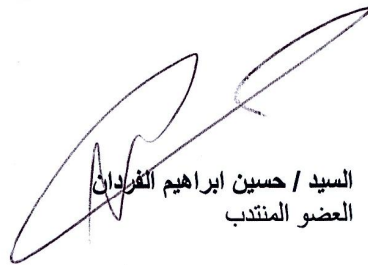 السيد / حسين ابراهيم الفردان
العضو المنتدب